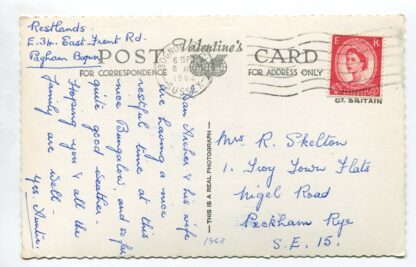 Restlands
E.34. East Front Rd.
Pagham Bognor
POST CARD
Valentine's
FOR CORRESPONDENCE
FOR ADDRESS ONLY
BOGNOR
6
8
SUSSEX
E R
GT. BRITAIN
Dan Archer & his wife
are having a nice
restful time at this
nice Bungalow, and so far
quite good weather.
Hoping you & all the
family are well
yrs Auntie.
THIS IS A REAL PHOTOGRAPH
1963
Mrs R. Skelton
1, Troy Town Flats
Nigel Road
Peckham Rye
S.E. 15.